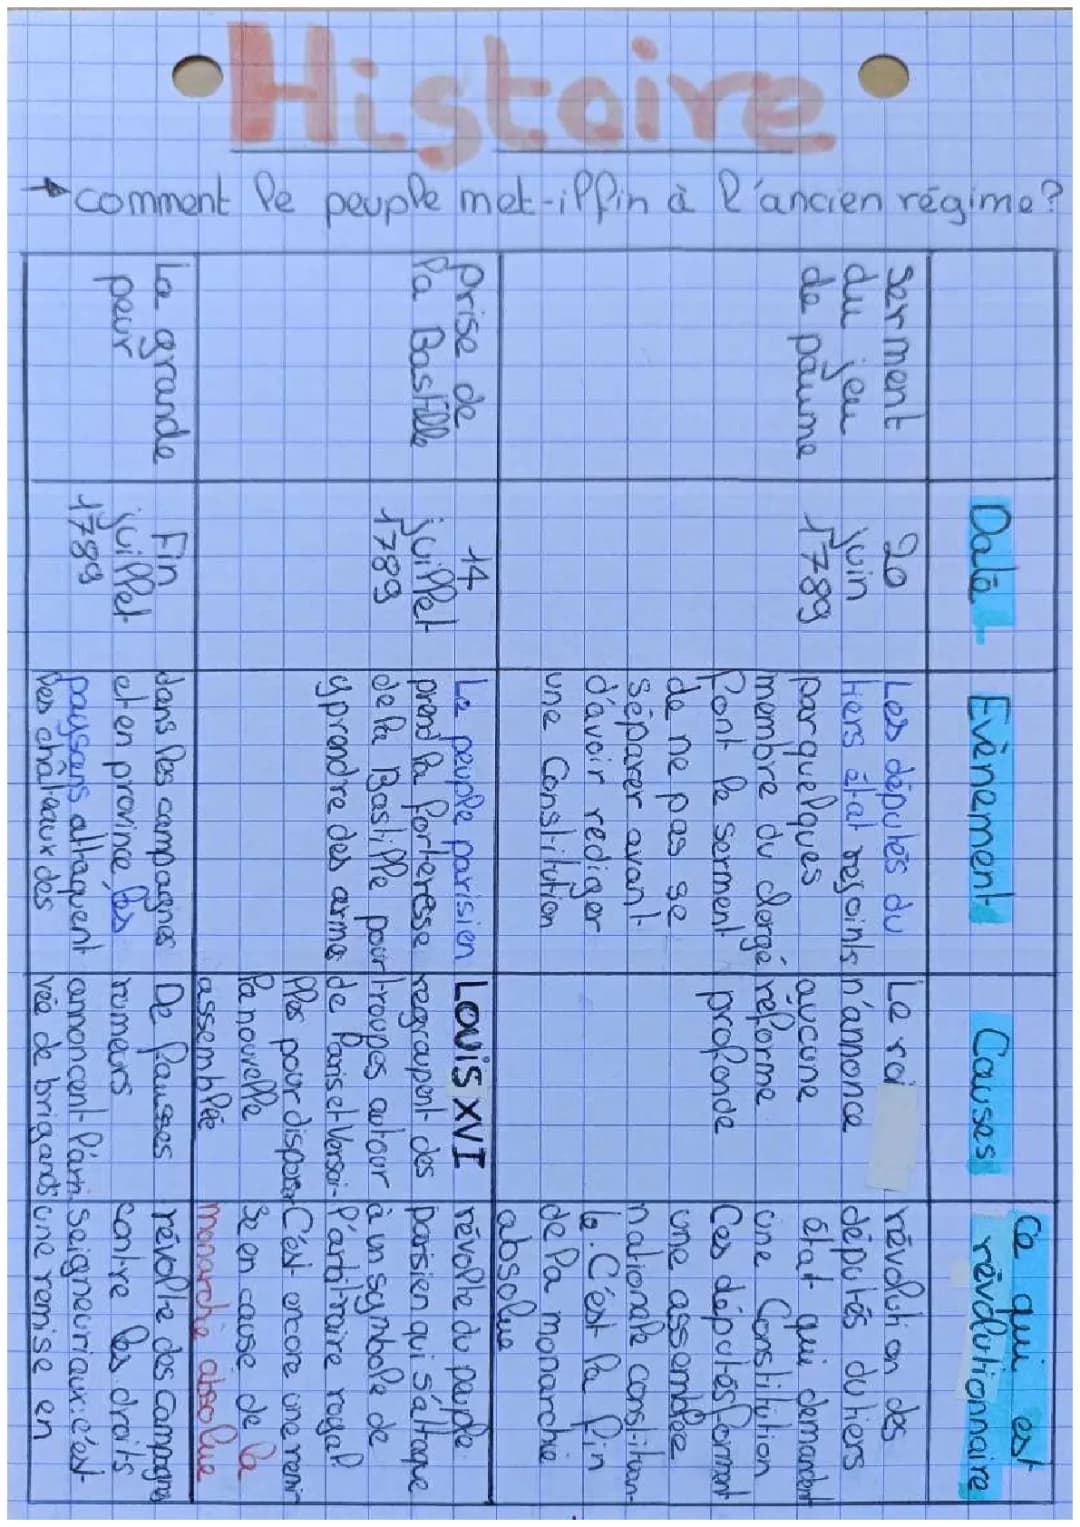 Histoire
→ comment le peuple met-il fin à l'ancien régime?
Date
Evènement
Causes
Ce qui est
révolutionnaire
serment
du jeu
de paume
20
juin
1789
Les députés du
tiers état rejoints
par quelques
membre du clergé
font le serment
de ne pas se
séparer avant
d'avoir rediger
une Constitution
Le roi
n'annonce
aucune
réforme
profonde
révolution des
députés du tiers
état qui demandent
une Constitution
Ces députés forment
une assemblée
nationale constituan-
te. C'est la fin
de la monarchie
absolue
prise de
la Bastille
14
juillet
1789
Le peuple parisien
prend la forteresse
de la Bastille pour
y prendre des armes
Louis XVI
regroupent des
troupes autour
de Paris et Versai-
lles pour disperser
la nouvelle
assemblée
révolte du peuple
parisien qui s'attaque
à un symbole de
l'arbitraire royal
C'est encore une remi-
se en cause de la
monarchie absolue
La grande
peur
Fin
juillet
1789
dans les campagnes
et en province, les
paysans attaquent
les châteaux des
De fausses
rumeurs
annoncent l'arri-
vée de brigands
révolte des campagnes
contre les droits
seigneuriaux: c'est
une remise en